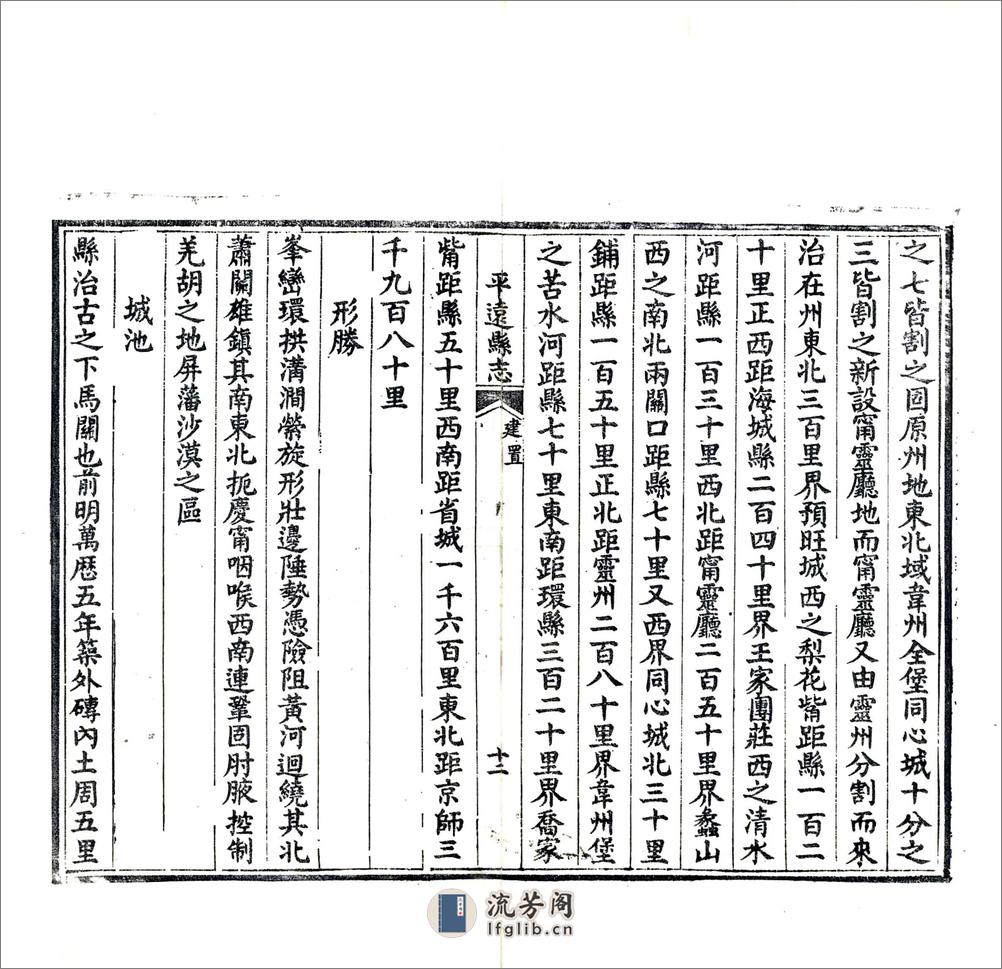 之七皆割之固原州地東北域韋州全堡同心城十分之
三皆割之新設甯靈廳地而甯靈廳又由靈州分割而來
治在州東北三百里界預旺城西之梨花觜距縣一百二
十里正西距海城縣二百四十里界王家團莊西之清水
河距縣一百三十里西北距甯靈廳二百五十里界蠡山
西之南北兩關口距縣七十里又西界同心城北三十里
鋪距縣一百五十里正北距靈州二百八十里界韋州堡
之苦水河距縣七十里東南距環縣三百二十里界喬家
平遠縣志
建置
十二
觜距縣五十里西南距省城一千六百里東北距京師三
千九百八十里
形勝
峯巒環拱溝澗縈旋形壯邊陲勢憑險阻黃河迴繞其北
蕭關雄鎮其南東北扼慶甯咽喉西南連鞏固肘腋控制
羌胡之地屏藩沙漠之區
城池
縣治古之下馬關也前明萬歷五年築外磚內土周五里
流芳阁
lfglib.cn